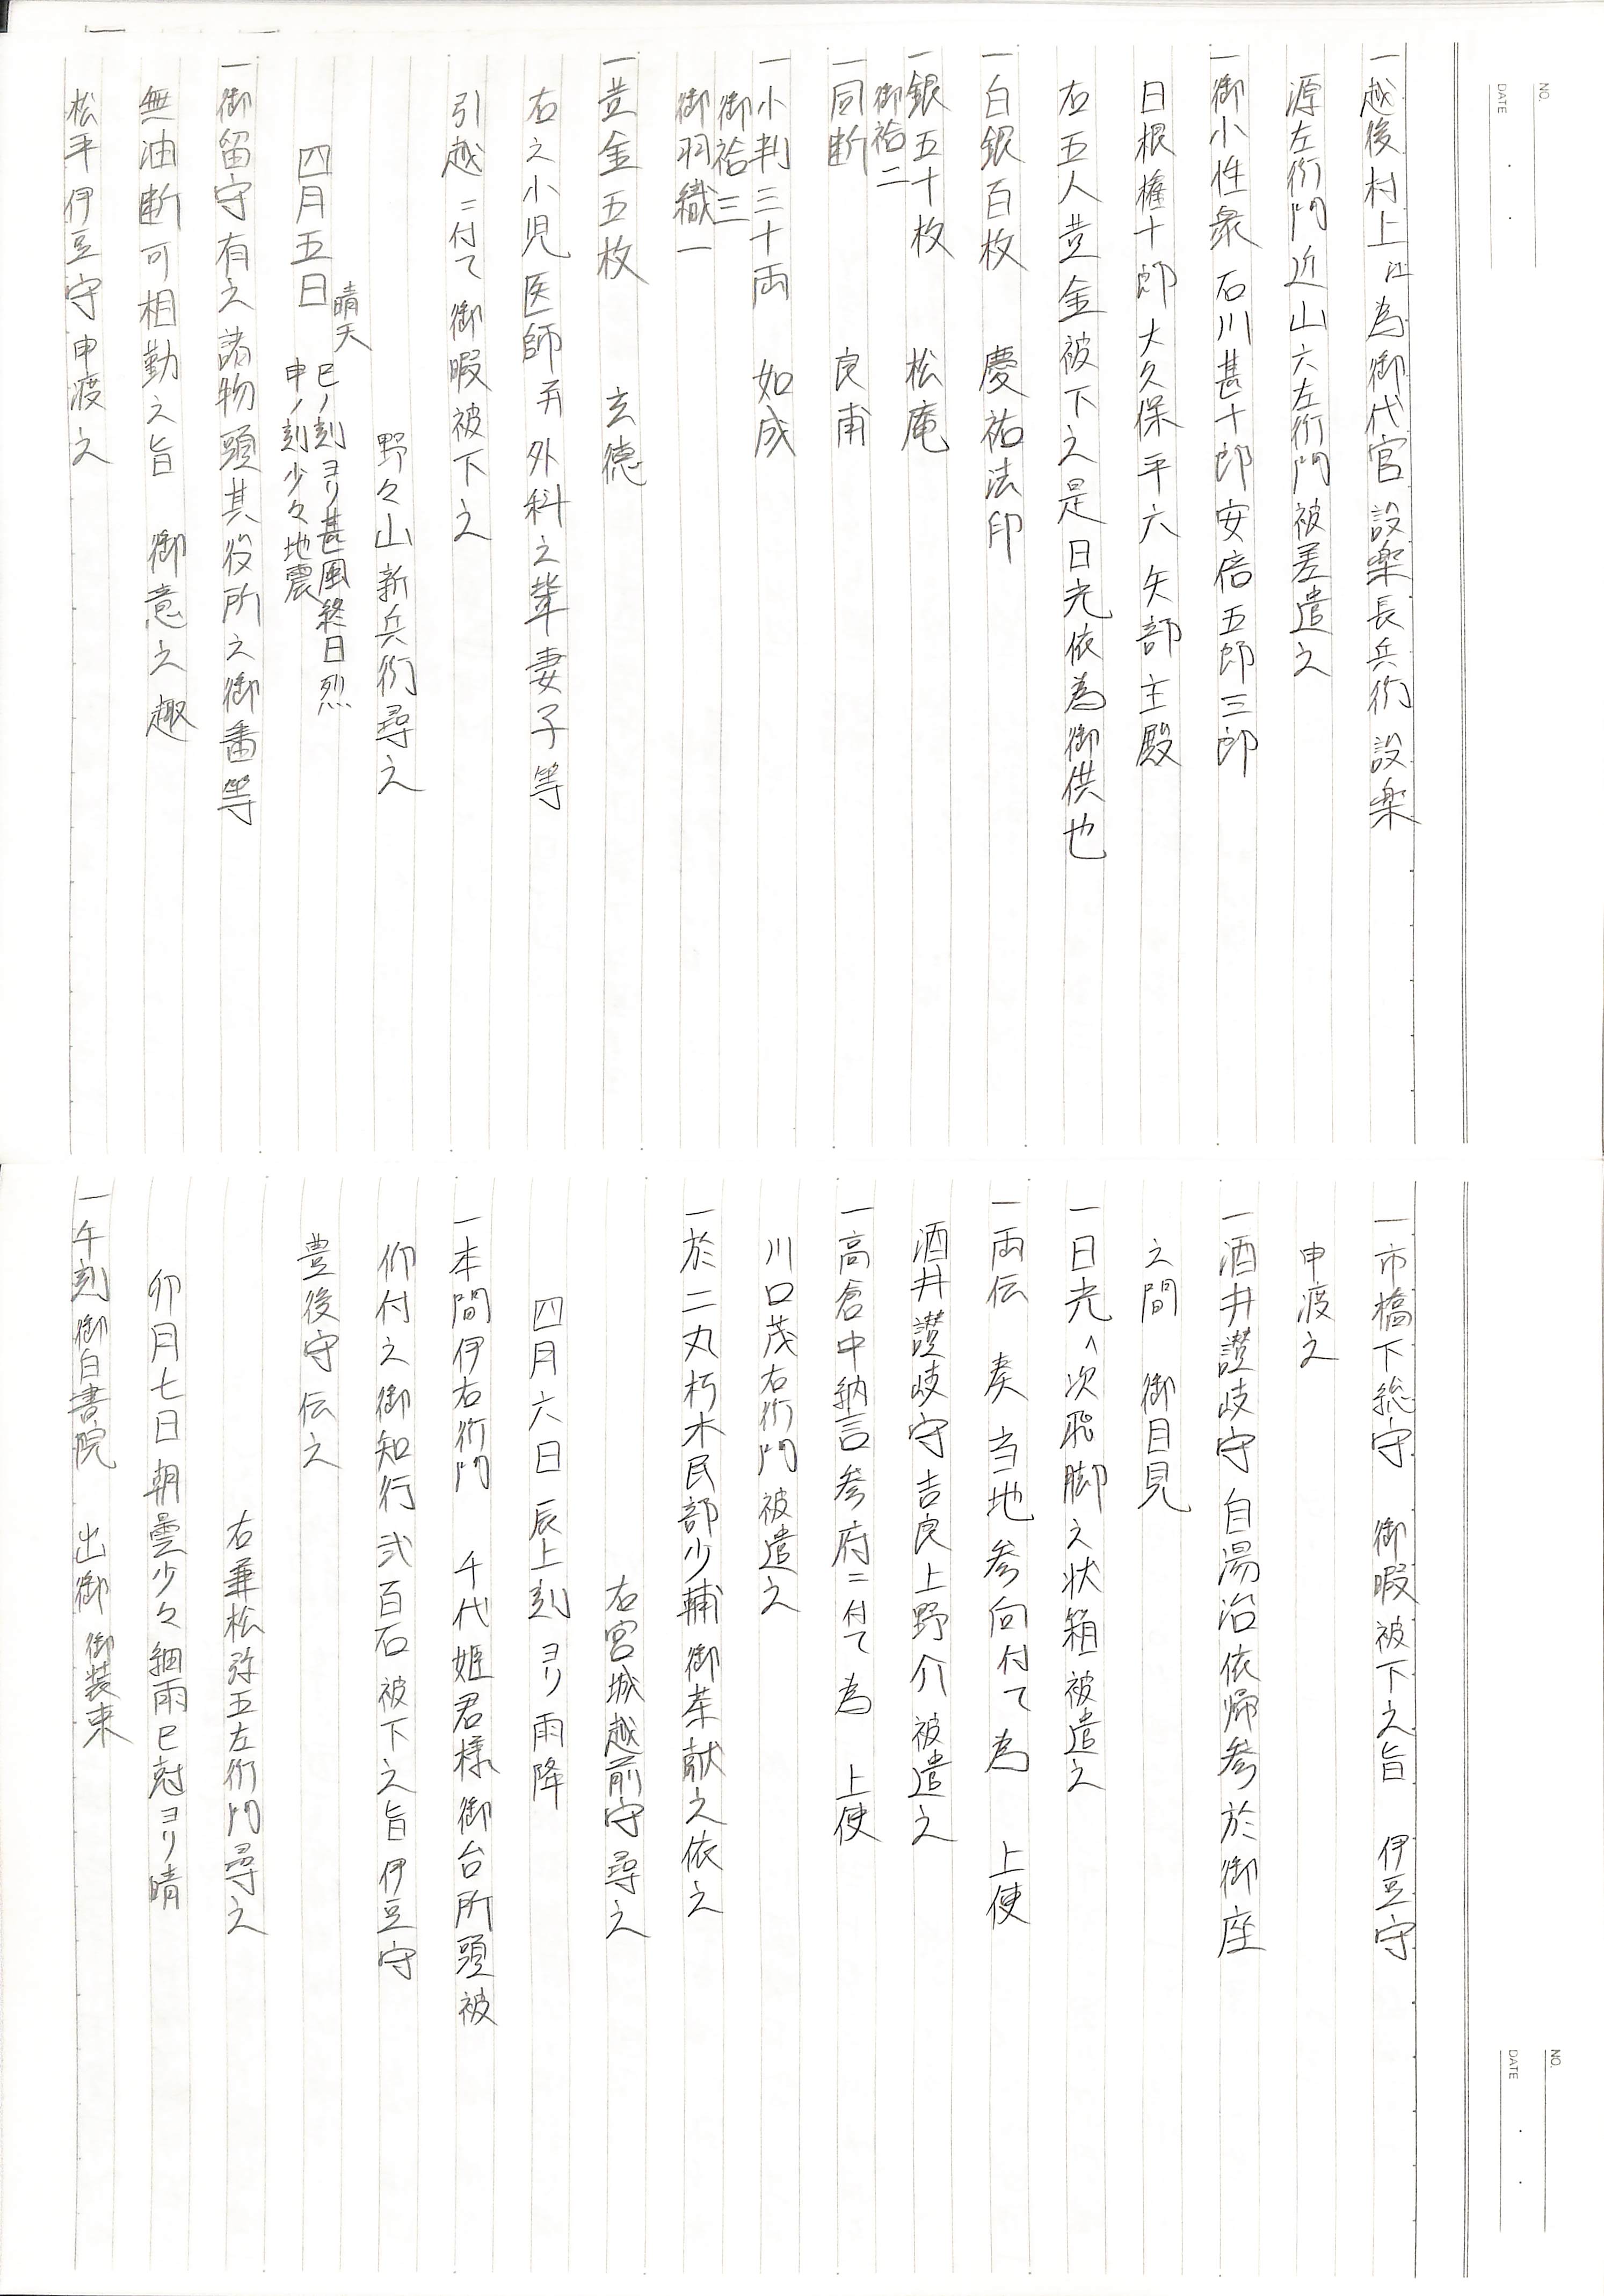 NO.
DATE
一越後村上江為御代官設楽長兵衛設楽
源左衛門近山六左衛門被差遣之
一御小性衆石川甚十郎安倍五郎三郎
日根権十郎大久保平六矢部主殿
右五人黄金被下之是日光依為御供也
一白銀百枚 慶祐法印
一銀五十枚 松庵
御袷二
一同断 良甫
一小判三十両 如成
御袷三
御羽織一
一黄金五枚 玄徳
右之小児医師并外科之輩妻子等
引越ニ付て御暇被下之
野々山新兵衛尋之
四月五日 晴天 巳ノ刻ヨリ甚風終日烈
申ノ刻少々地震
一御留守有之諸物頭其役所之御番等
無油断可相勤之旨 御意之趣
松平伊豆守申渡之
NO.
DATE
一市橋下総守 御暇被下之旨 伊豆守
申渡之
一酒井讃岐守自湯治依帰参於御座
之間 御目見
一日光へ次飛脚之状箱被遣之
一両伝 奏当地参向付て為 上使
酒井讃岐守吉良上野介被遣之
一高倉中納言参府ニ付て為 上使
川口茂右衛門被遣之
一於二丸朽木民部少輔御茶献之依之
右宮城越前守尋之
四月六日辰上刻ヨリ雨降
一本間伊右衛門 千代姫君様御台所頭被
仰付之御知行弐百石被下之旨伊豆守
豊後守伝之
右兼松弥五左衛門尋之
卯月七日朝曇少々細雨巳刻ヨリ晴
一午刻御白書院 出御御装束